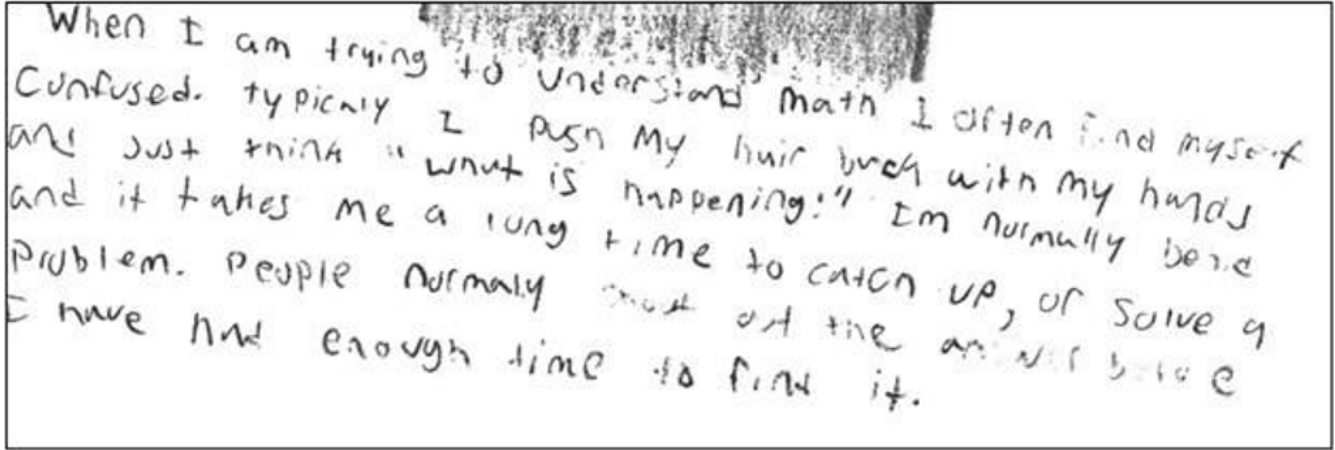 When I am trying to understand math I often find myself
Confused. typicaly I push My hair back with my hands
and just think "what is happening!" Im normally
and it takes me a long time to catch up, or Solve a
Problem. People normaly out the answer before
I have had enough time to find it.